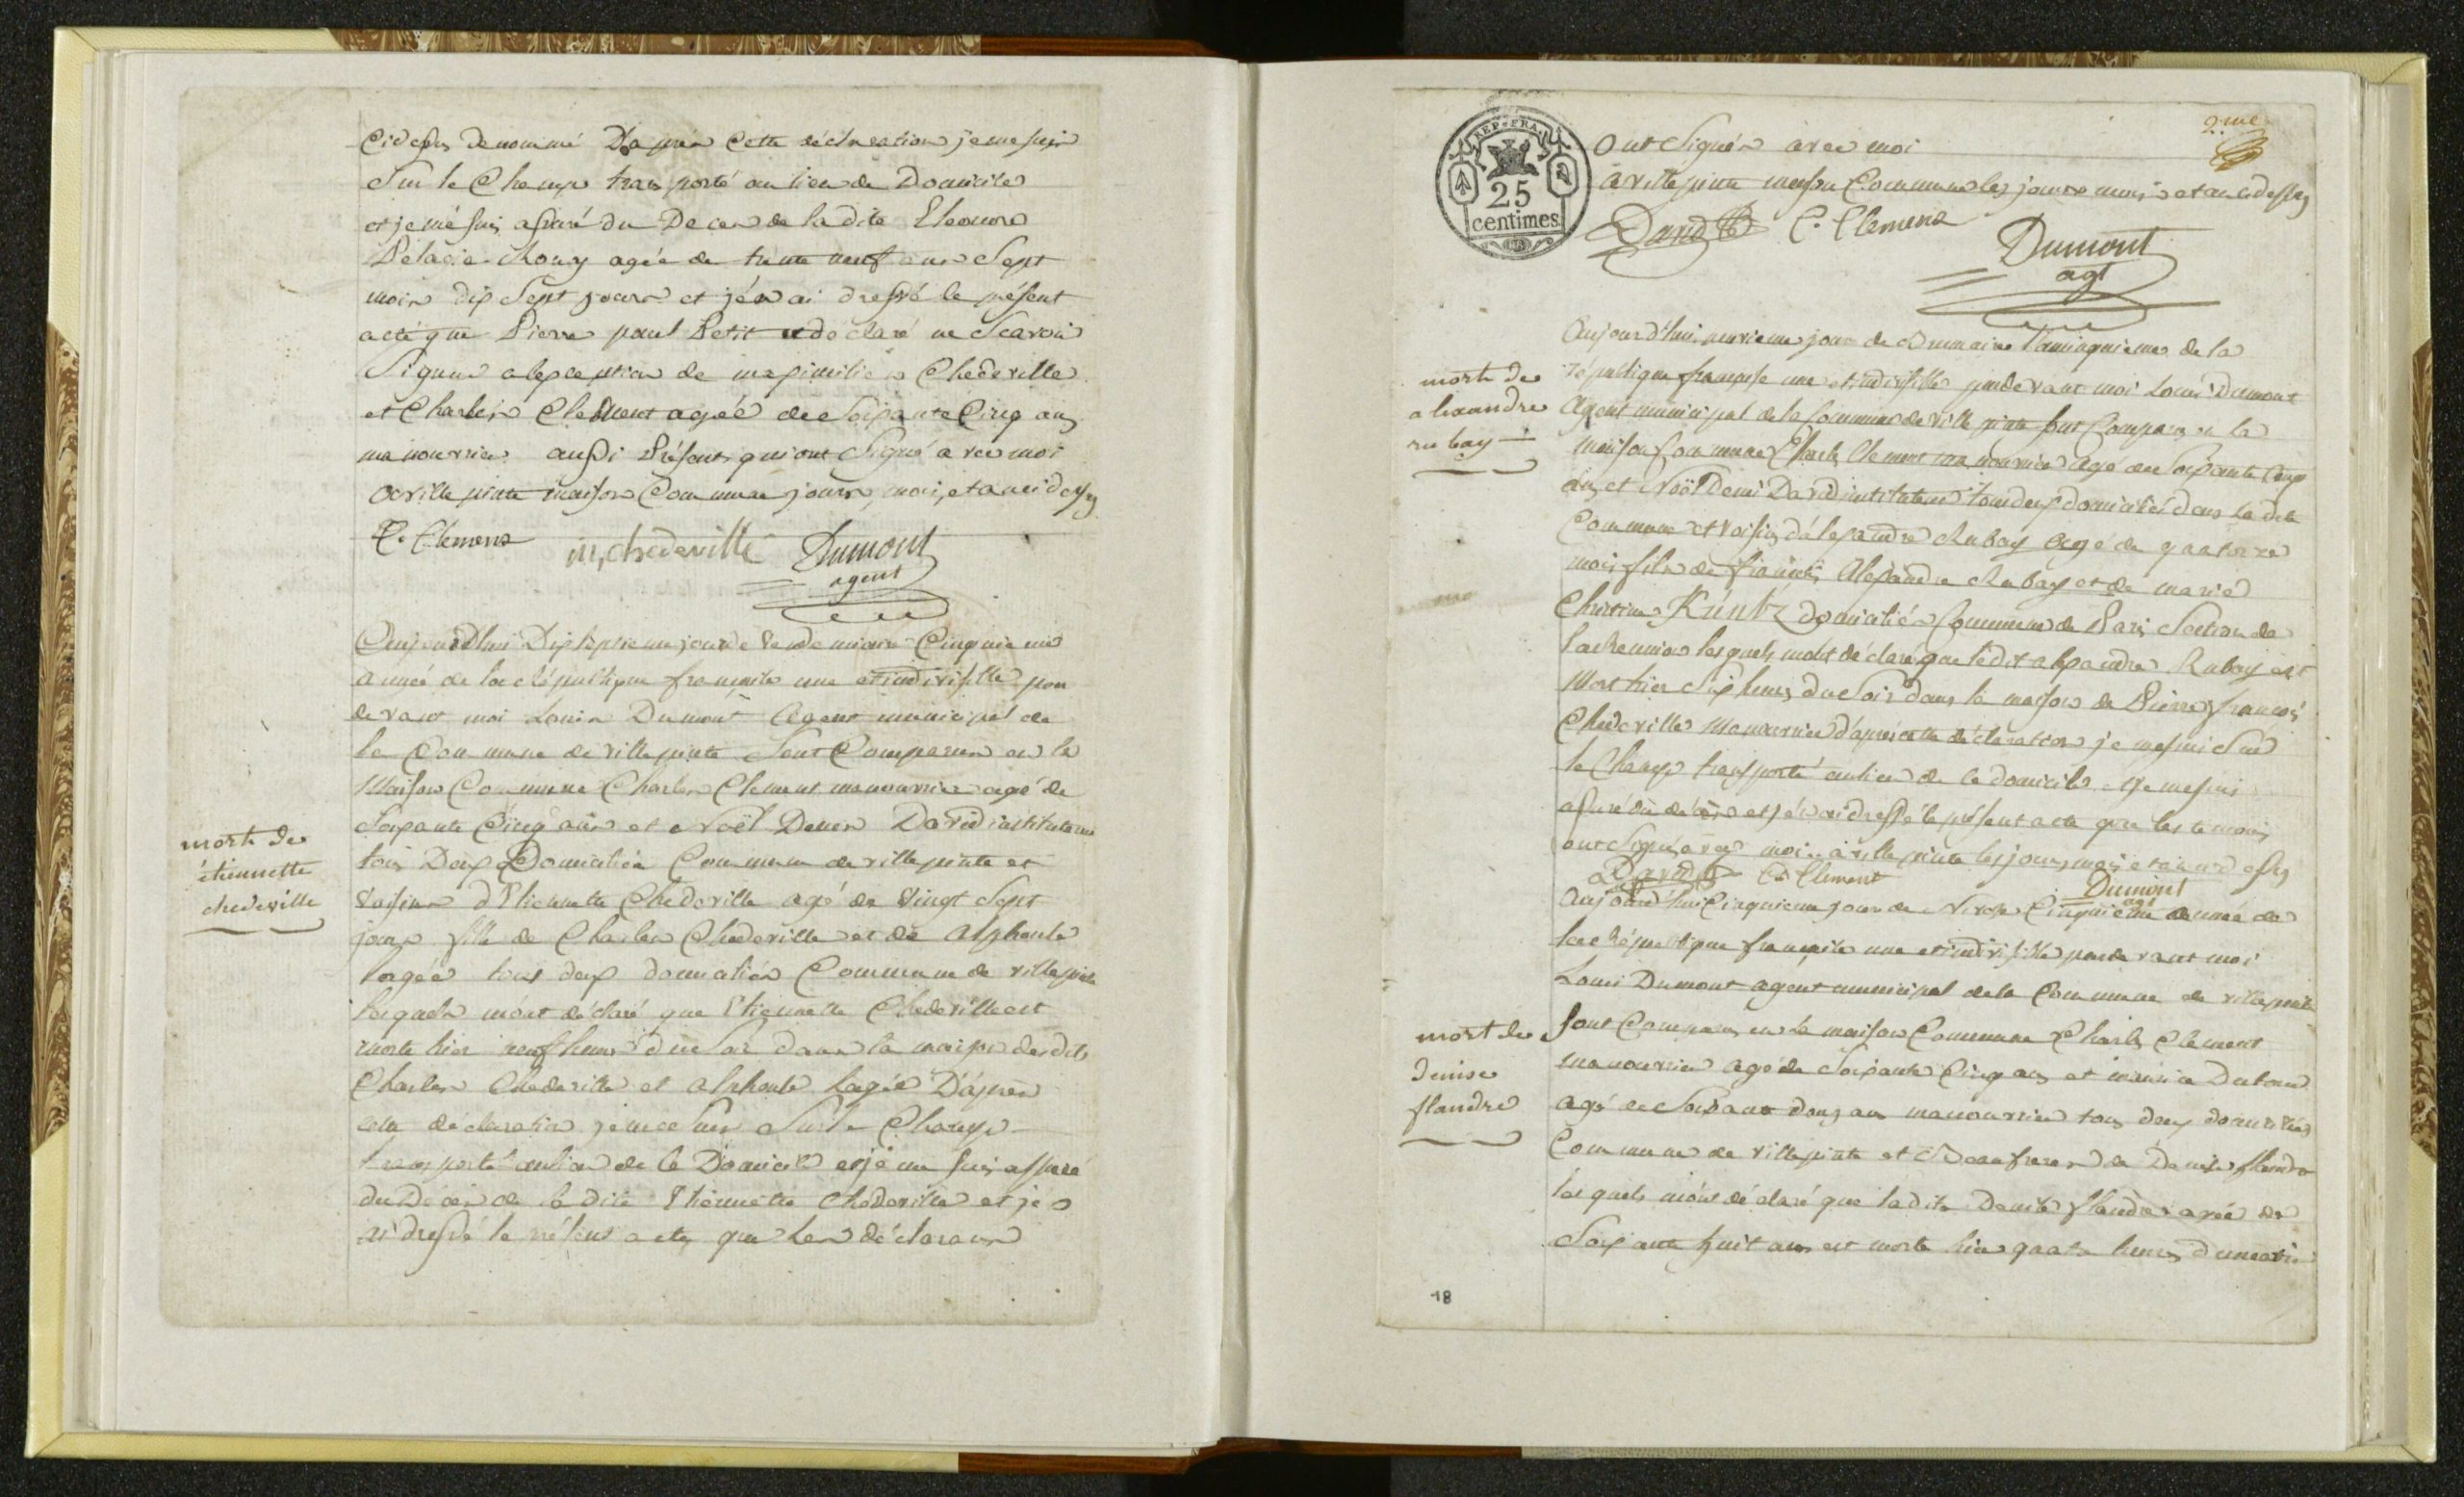 Cidessus denommé D'après Cette déclaration je me suis
Sur le Champ transporté au lieu de Domicile
et je mé suis assuré du Deces de ladite Eleonore
Pelagie Rouy agée de trente neuf ans Sept
mois dix Sept jours et j'én ai dressé le présent
acte que Pierre paul Petit declaré ne Scavoir
Signer alexception de maximilien Chedeville
et Charles Clement ageé de Soixante Cinq ans
manouvrier aussi Présents qui ont Signé avec moi
a villepinte maison Commune jours, mois, et an cidessus
C. Clemens m, chedeville Dumont
agent
mort de
étiennette
chedeville
Aujourdhui Dix septieme jour de Vendemiaire Cinquieme
année de la République française une et indivisible par
devant moi Louis Dumont Agent municipal de
la Commune de villepinte Sont Comparus en la
Maison Commune Charles Clement manouvrier agé de
Soixante Cinq ans et Noël Denis David instituteur
tous Deux Domiciliés Commune de villepinte et
Voisins d'Etiennette Chedeville agé de Vingt Sept
jours fille de Charles Chedeville et de Alphonse
Lageé tous deux domiciliés Commune de villepinte
lesquels m'ont déclaré que Etiennette Chedeville est
morte hier neuf heures du Soir dans la maison desdits
Charles Chedeville et alphonse Lageé D'après
cette déclaration je me suis Sur le Champ
transporté au lieu de le Domicile et je me suis assuré
du Décès de la dite Etiennette Chedeville et je
ai dressé le présent acte que les déclarans
REP. FRA.
25
centimes
2.me
Ont Signés avec moi
a villepinte maison Commune les jours mois et an cidessus
David C. Clemens
Dumont
agt
mort de
alexandre
rubay
Aujourd'hui neuvieme jour de Brumaire l'an cinquieme de la
république française une et indivisible pardevant moi Louis Dumont
Agent municipal de la Commune de Villepinte sont Comparus en la
maison Commune Charles Clement manouvrier Agé de Soixante Cinq
ans et Noël Denis David instituteur tous deux domiciliés dans la dite
Commune et Voisins d'alexandre Rubay Agé de quatorze
mois fils de françois Alexandre Rubay et de marie
Christine Küntz domiciliés Commune de Paris Section de
la Reunion lesquels m'ont déclaré que ledit alexandre Rubay est
Mort hier Six heures du Soir dans la maison de Pierre françois
Chedeville Manouvrier d'après cette déclaration je me suis Sur
le Champ transporté au lieu de le domicile et je me suis
assuré du décès et j'én ai dressé le présent acte que les témoins
ont Signé avec moi a villepinte les jours, mois et an cidessus
David C. Clement Dumont
agt
mort de
denise
flandre
Aujourd'hui Cinquieme jour de Nivose Cinquième année de
la République française une et indivisible pardevant moi
Louis Dumont agent municipal de la Commune de villepinte
Sont Comparus en la maison Commune Charles Clement
manouvrier agé de Soixante Cinq ans et
agé de Soixante douze ans manouvrier tous deux domiciliés
Commune de villepinte et Beaufreres de Denise flandre
lesquels m'ont déclaré que ladite Denise flandre agée de
Soixante huit ans est morte hier quatre heures du matin
18